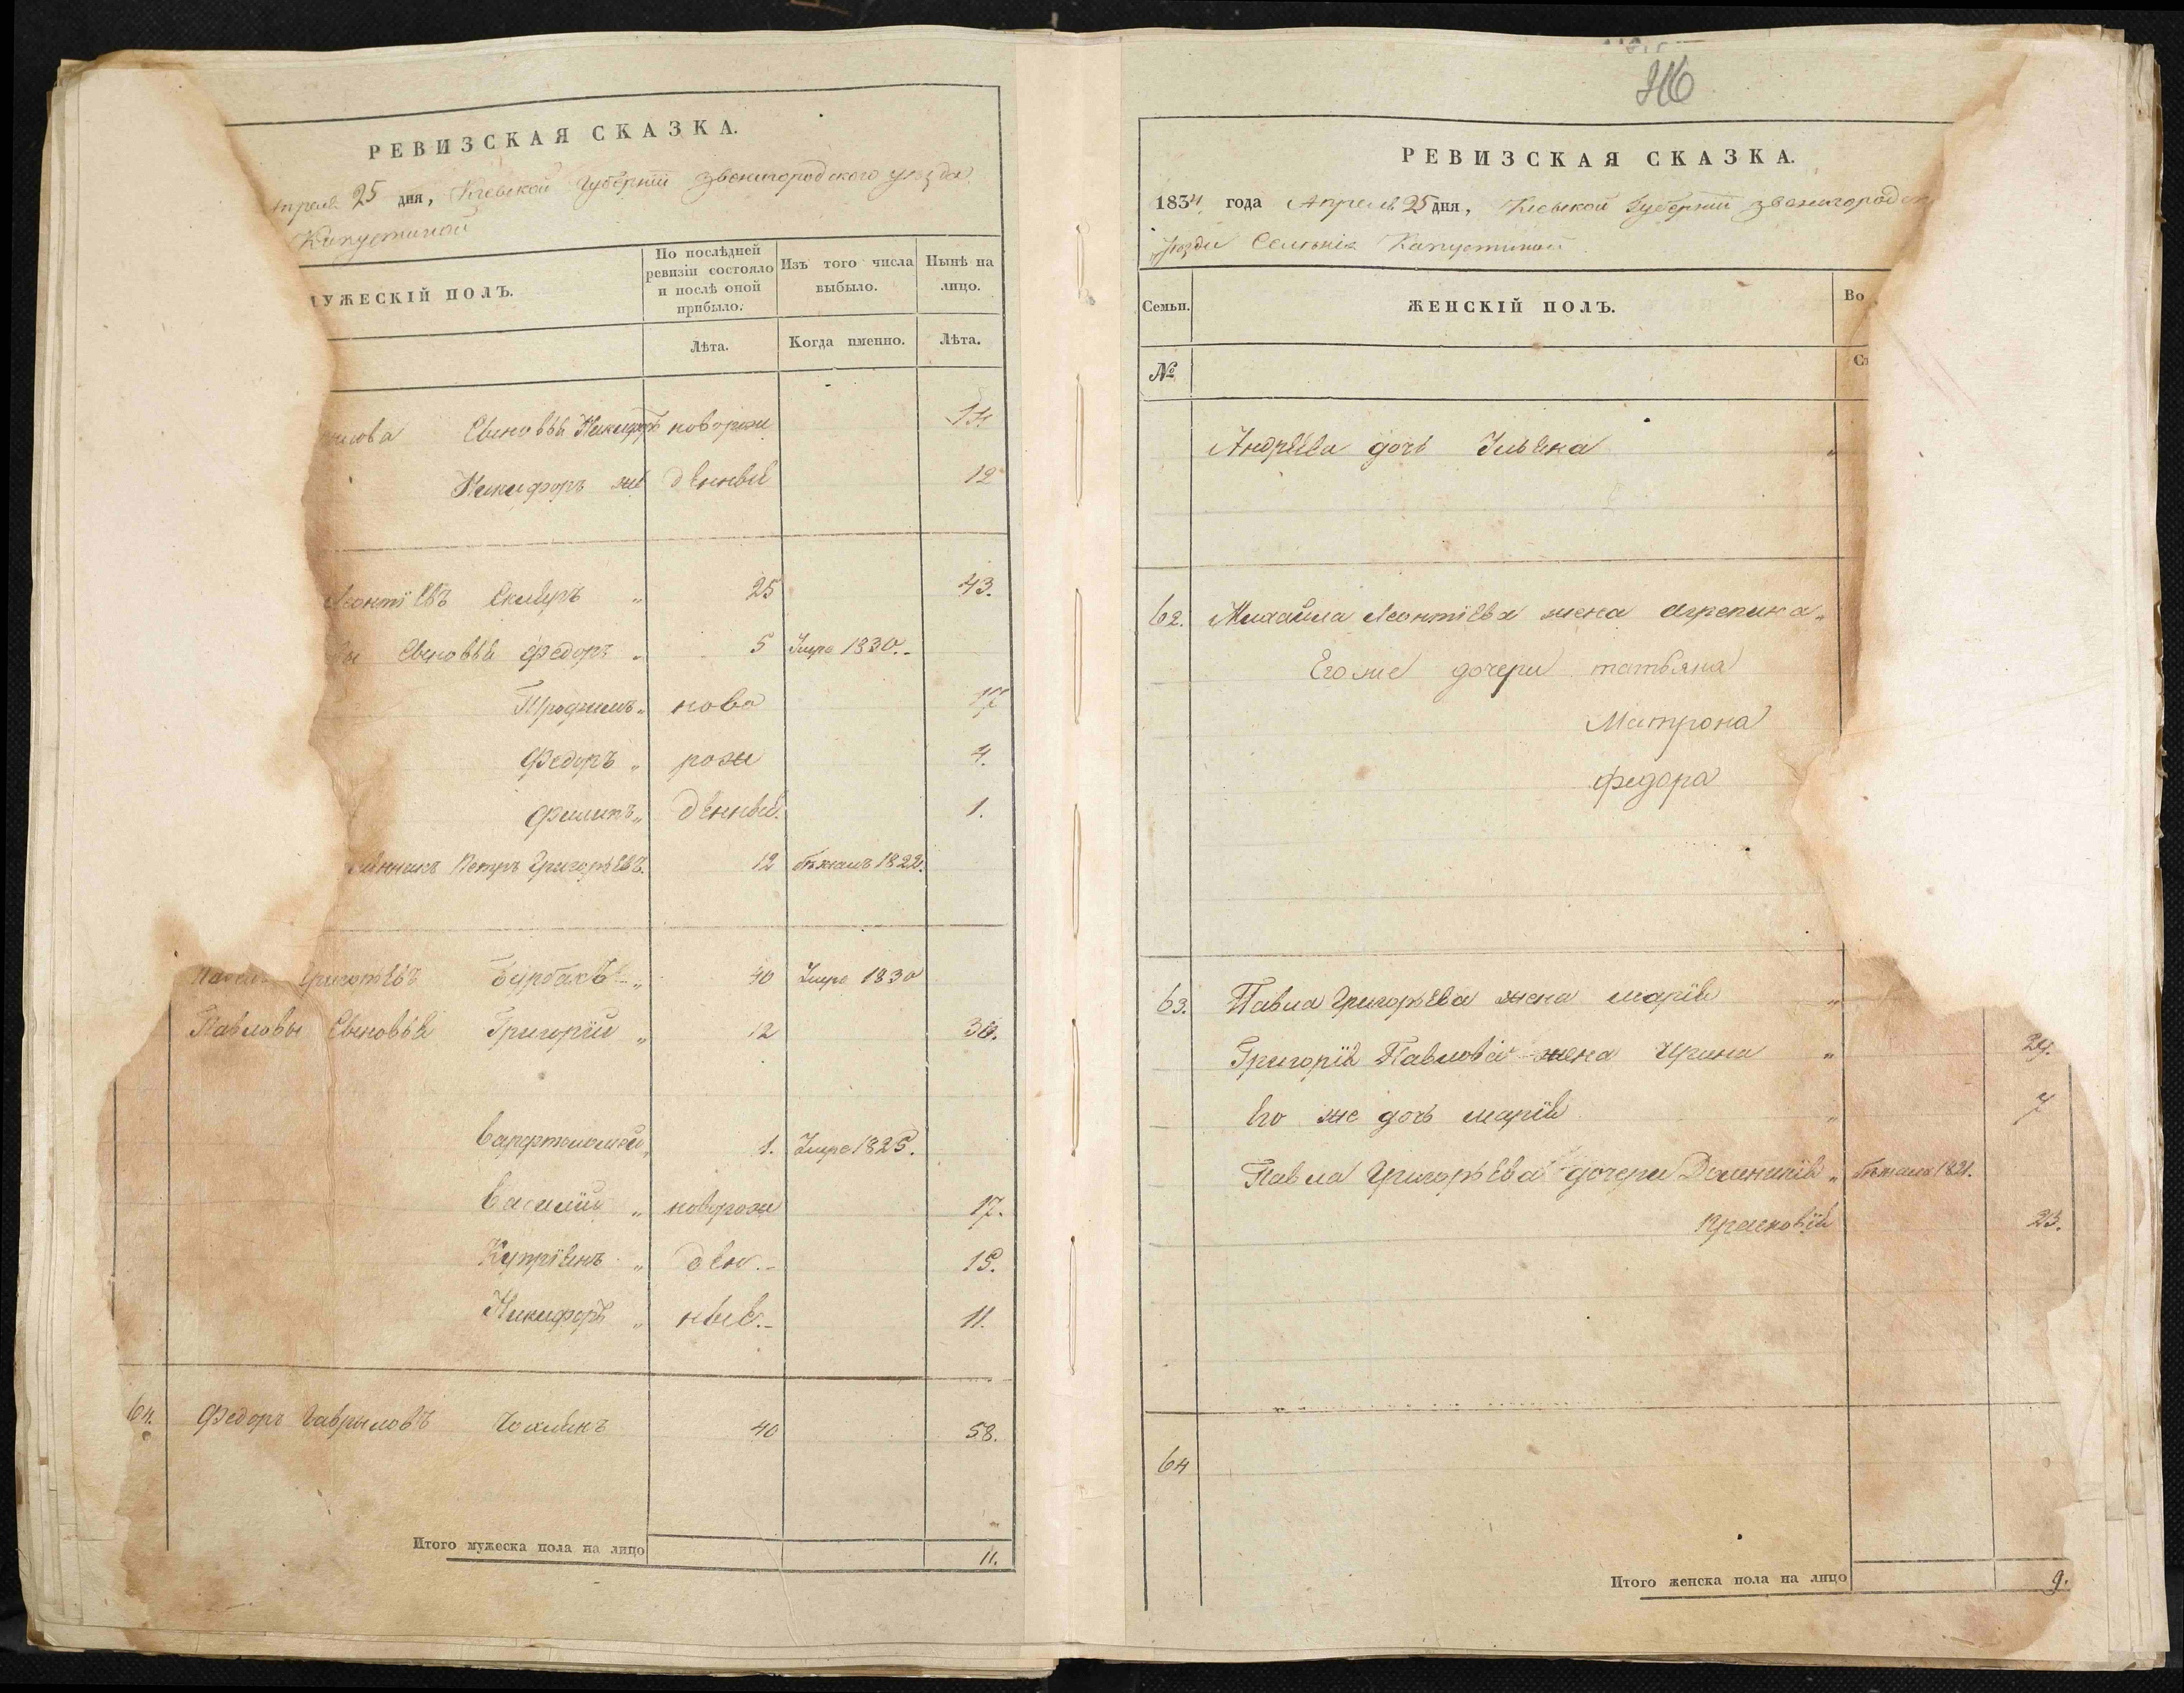 РЕВИЗСКАЯ СКАЗКА.
25 дня, Кіевской Губерніи Звенигородского уѣзда
Капустиной
МУЖЕСКІЙ ПОЛЪ.
По послѣдней ревизіи состояло и послѣ оной прибыло.
Изъ того числа выбыло.
Нынѣ на лицо.
Лѣта.
Когда именно.
Лѣта.
Сыновья Никифоръ новорож 14
Никифоръ же денныя 12
Леонтіевъ 25 43.
Сыновья Федоръ „ 5 Умре 1830.
Трофимъ „ ново 17
Федоръ „ рож 4.
Филипъ „ денныя. 1.
Петръ Григорьевъ. 12 бѣжалъ 1822.
Григорьевъ Бурбакъ „ 40 Умре 1830
Павловы Сыновья Григорій „ 12 30.
Варфтоломей „ 1. Умре 1825.
Василій „ новорож 17.
Купріянъ „ ден. 15.
Никифоръ „ ныя. 11.
64. Федоръ Гаврыловъ 40 58.
Итого мужеска пола на лицо 11.
316
РЕВИЗСКАЯ СКАЗКА.
1834 года Апреля 25 дня, Кіевской Губерніи Звенигород
уѣзда Селенія Капустиной
Семьи.
ЖЕНСКІЙ ПОЛЪ.
Во
№
Андреева дочь Ульяна „
62. Михайла Леонтіева жена Агрепина „
Его же дочери татьяна
Матрона
федора
63. Павла Григорьева жена марія „
Григорія Павлова жена Ирина „ 29.
Его же дочь марія „ 7
Павла Григорьева дочери „ бѣжала 1821.
23.
64
Итого женска пола на лицо 9.